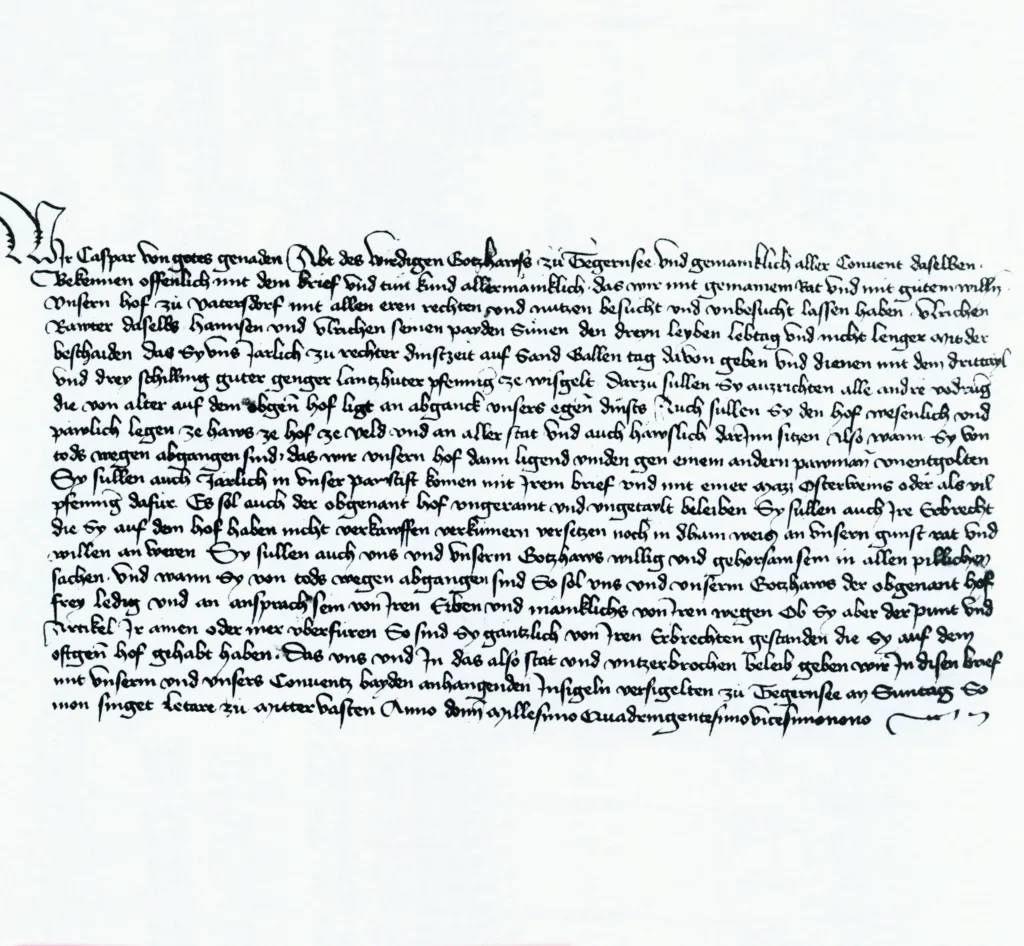 Wir Caspar von gotes genaden Abt des wirdigen Gotzhawss zu Tegernsee vnd gemainklich aller Convent daselben.
Bekennen offenlich mit dem brief vnd tun kund allermainklich, das wir mit gemainem Rat vnd mit gutem willn
vnsern hof zu Vatersdorf mit allen eren rechten vnd nutzen besucht vnd vnbesucht lassen haben. Vlrichen
Rawter daselbs Hannsen vnd Vlrichen seinen payden Sünen den dreyn leyben lebtag vnd nicht lenger Mit der
beschaiden das Sy vns Jarlich zu rechter dinstzeit auf Sand Gallen tag davon geben vnd dienen mit dem drittayl
vnd drey schilling guter genger lantzhuter pfennig ze wisgelt Darzu sullen Sy auzrichten alle andre vodrug
die von alter auf dem obgen hof ligt an abganck vnsers egen dinsts Auch sullen Sy den hof wesenlich vnd
pawlich legen ze haws ze hof ze veld vnd an aller stat vnd auch hawslich darInn sitzen Also wann Sy von
tods wegen abgangen sind, das wir vnsern hof dann ligend vinden gen einem andern pawman vnentgolten
Sy sullen auch Jarlich in vnser pawstift komen mit Irem brief vnd mit einer Mazz Osterweins oder als vil
pfennig dafür. Es sol auch der obgenant hof vngeraint vnd vngetaylt beleiben Sy sullen auch Ire Erbrecht
die Sy auf dem hof haben nicht verkawffen verkümern versetzen noch in dhain weis an vnsern gunst rat vnd
willen an weren Sy sullen auch vns vnd vnserm Gotzhaws willig vnd gehorsam sein in allen pillichen
sachen. Vnd wann Sy von tods wegen abgangen sind So sol vns vnd vnserm Gotzhaws der obgenant hof
frey ledig vnd an ansprach sein von Iren Erben vnd mainklichs von Iren wegen Ob Sy aber der punt vnd
Artikel Ir ainen oder mer vberfüren So sind Sy gantzlich von Iren Erbrechten gestanden die Sy auf dem
oftgen hof gehabt haben. Das vns vnd In das also stat vnd vntzerbrochen beleib geben wir In disen brief
mit vnserm vnd vnsers Conventz bayden anhangenden Insigeln versigelten zu Tegernsee an Suntag So
mon singet Letare zu Mittervasten Anno domi Millesimo Quadringentesimo vicesimonono